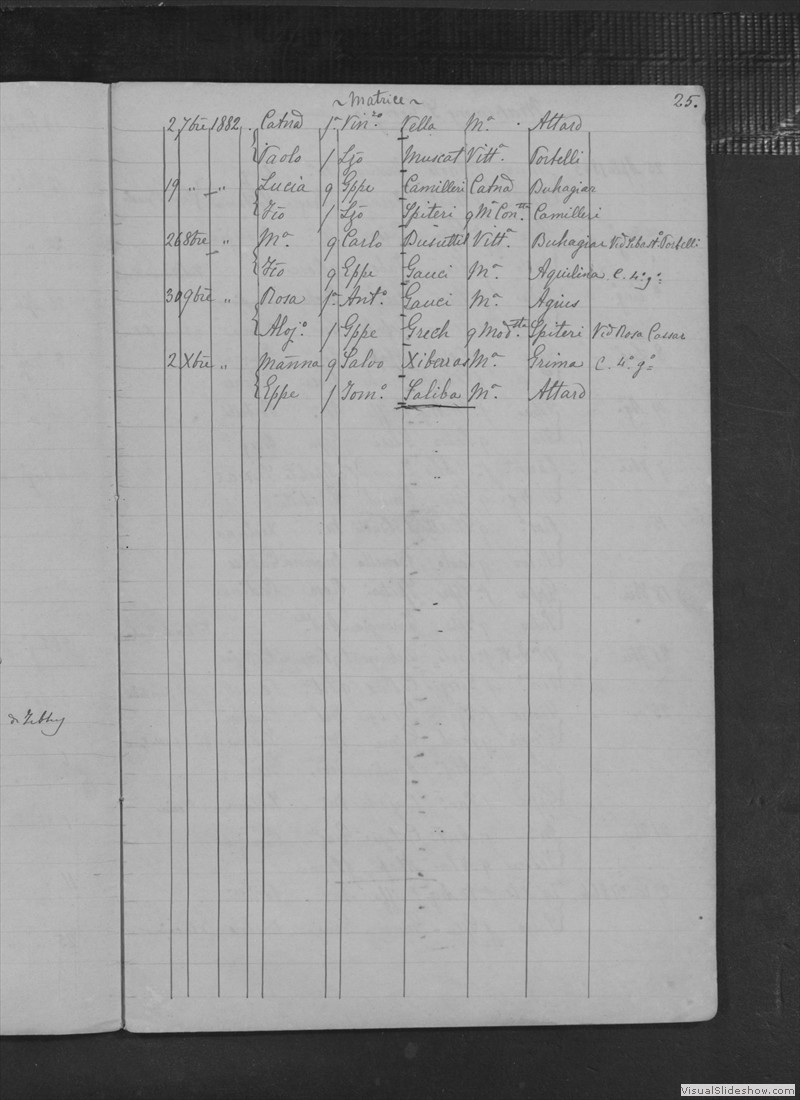 ~ Matrice ~ 25.
2 7bre 1882 . Catnà f. Vinzo Vella Mª . Attard
Paolo f Lzo Muscat Vittª Portelli
19 " " Lucia q Gppe Camilleri Catnà Buhagiar
f Lzo Spiteri q Mª Camilleri
26 8bre " Mª q Carlo Busuttil Vittª Buhagiar Vid Portelli
q Eppe Gauci Mª Aquilina C. 4º gº
30 9bre " Rosa f. Antº Gauci Mª Agius
Alojº f Gppe Grech q Modtta Spiteri Vid Rosa Cassar
2 Xbre " Mãnna q Salvo Xiberras Mª Grima C. 4º gº
Eppe f Tomº Saliba Mª Attard